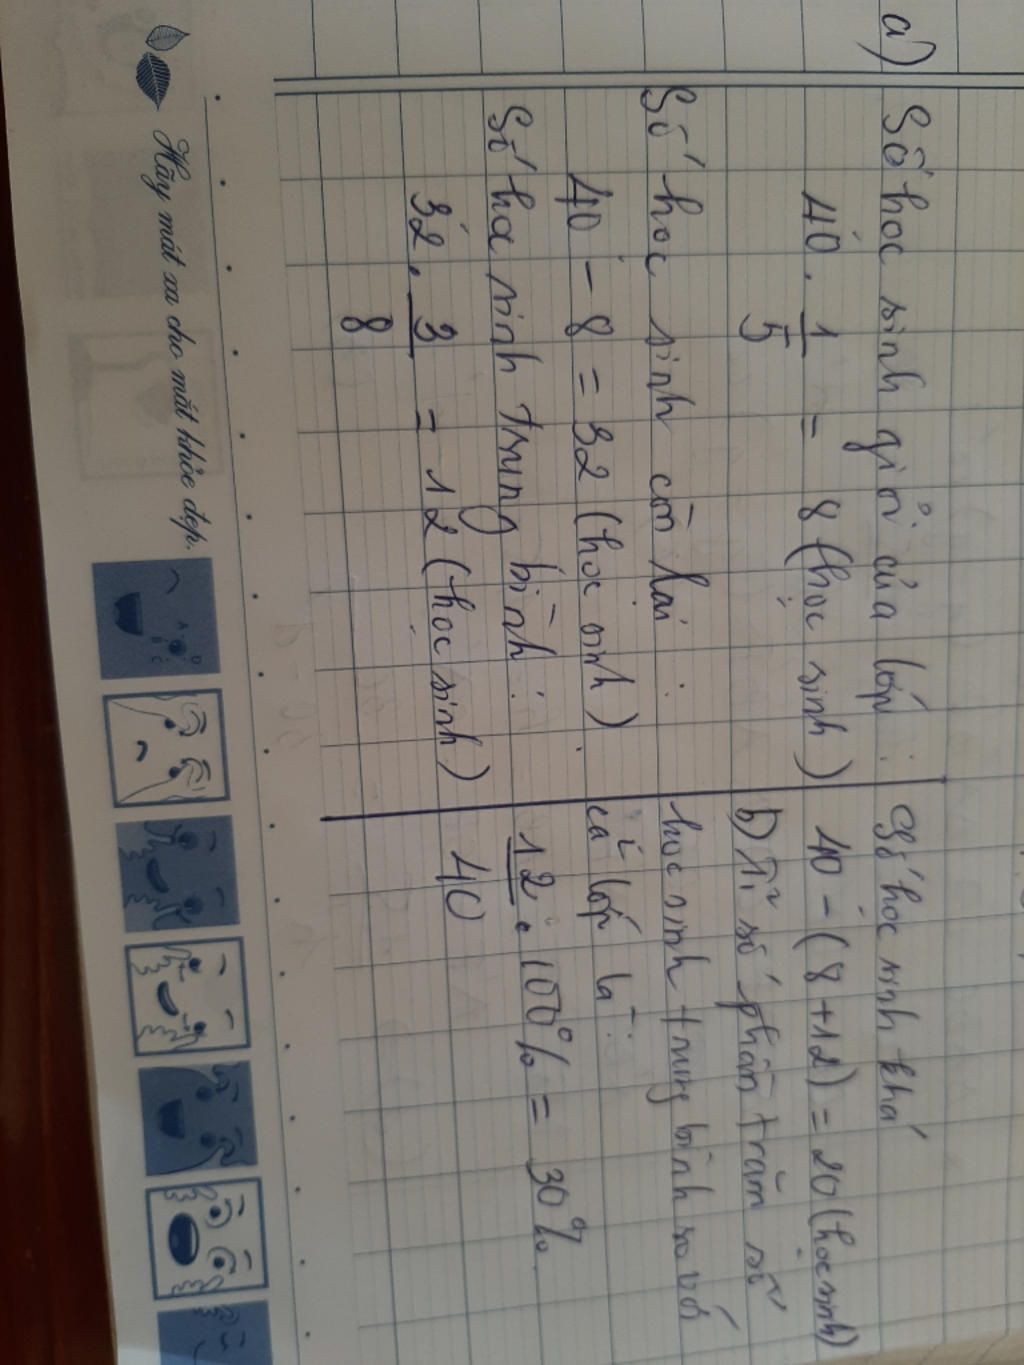 a)
Số học sinh giỏi của lớp :
40 . 1/5 = 8 (học sinh)
Số học sinh còn lại :
40 - 8 = 32 (học sinh)
Số học sinh trung bình :
32 . 3/8 = 12 (học sinh)
Số học sinh khá
40 - (8 + 12) = 20 (học sinh)
b) Tỉ số phần trăm số
học sinh trung bình so với
cả lớp là :
12/40 . 100% = 30%
Hãy mát xa cho mắt khỏe đẹp.